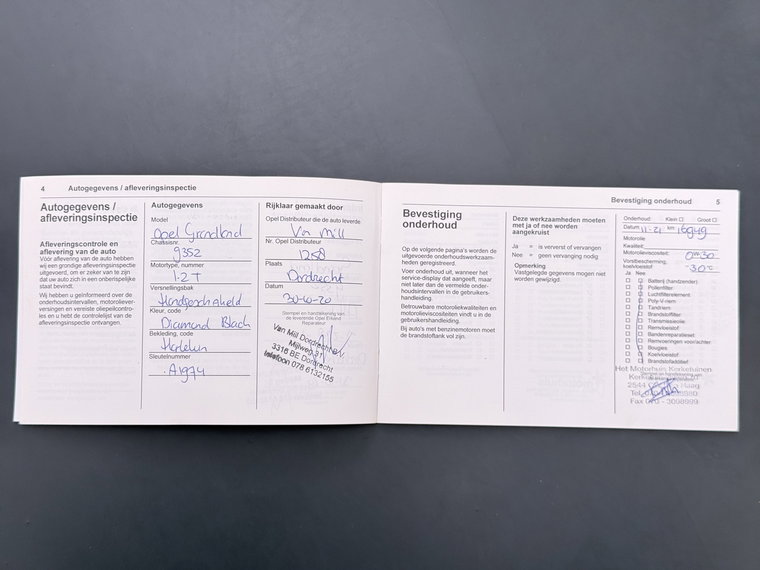 4 Autogegevens / afleveringsinspectie
Autogegevens /
afleveringsinspectie
Afleveringscontrole en
aflevering van de auto
Vóór aflevering van de auto hebben
wij een grondige afleveringsinspectie
uitgevoerd, om er zeker van te zijn
dat uw auto zich in een onberispelijke
staat bevindt.
Wij hebben u geïnformeerd over de
onderhoudsintervallen, motoroliever-
versingen en vereiste oliepeilcontro-
les en u hebt de controlelijst van de
afleveringsinspectie ontvangen.
Autogegevens
Model
Opel Grandland
Chassisnr.
9352
Motortype, nummer
1.2T
Versnellingsbak
Handgeschakeld
Kleur, code
Diamond Black
Bekleding, code
Harlekin
Sleutelnummer
A1974
Rijklaar gemaakt door
Opel Distributeur die de auto leverde
Van Mill
Nr. Opel Distributeur
1258
Plaats
Dordrecht
Datum
30-10-20
Stempel en handtekening van
de leverende Opel Erkend
Reparateur
Van Mill Dordrecht B.V.
Mijlweg 31
3316 BE Dordrecht
telefoon 078 6132155
Bevestiging onderhoud 5
Bevestiging
onderhoud
Op de volgende pagina's worden de
uitgevoerde onderhoudswerkzaam-
heden geregistreerd.
Voer onderhoud uit, wanneer het
service-display dat aangeeft, maar
niet later dan de vermelde onder-
houdsintervallen in de gebruikers-
handleiding.
Betrouwbare motoroliekwaliteiten en
motorolieviscositeiten vindt u in de
gebruikershandleiding.
Bij auto's met benzinemotoren moet
de brandstoftank vol zijn.
Deze werkzaamheden moeten
met ja of nee worden
aangekruist
Ja = is ververst of vervangen
Nee = geen vervanging nodig
Opmerking
Vastgelegde gegevens mogen niet
worden gewijzigd.
Onderhoud: Klein ☐ Groot ☐
Datum 11-21 km 16949
Motorolie
Kwaliteit:
Motorolieviscositeit: 0W30
Vorstbescherming,
koelvloeistof -30°C
Ja Nee
Batterij (handzender)
Pollenfilter
Luchtfilterelement
Poly-V-riem
Tandriem
Brandstoffilter
Transmissieolie
Remvloeistof
Bandenreparatieset
Remvoeringen voor/achter
Bougies
Koelvloeistof
Brandstofadditief
Het Motorhuis Kerketuinen
2544 Haag
Fax 070 - 3098999